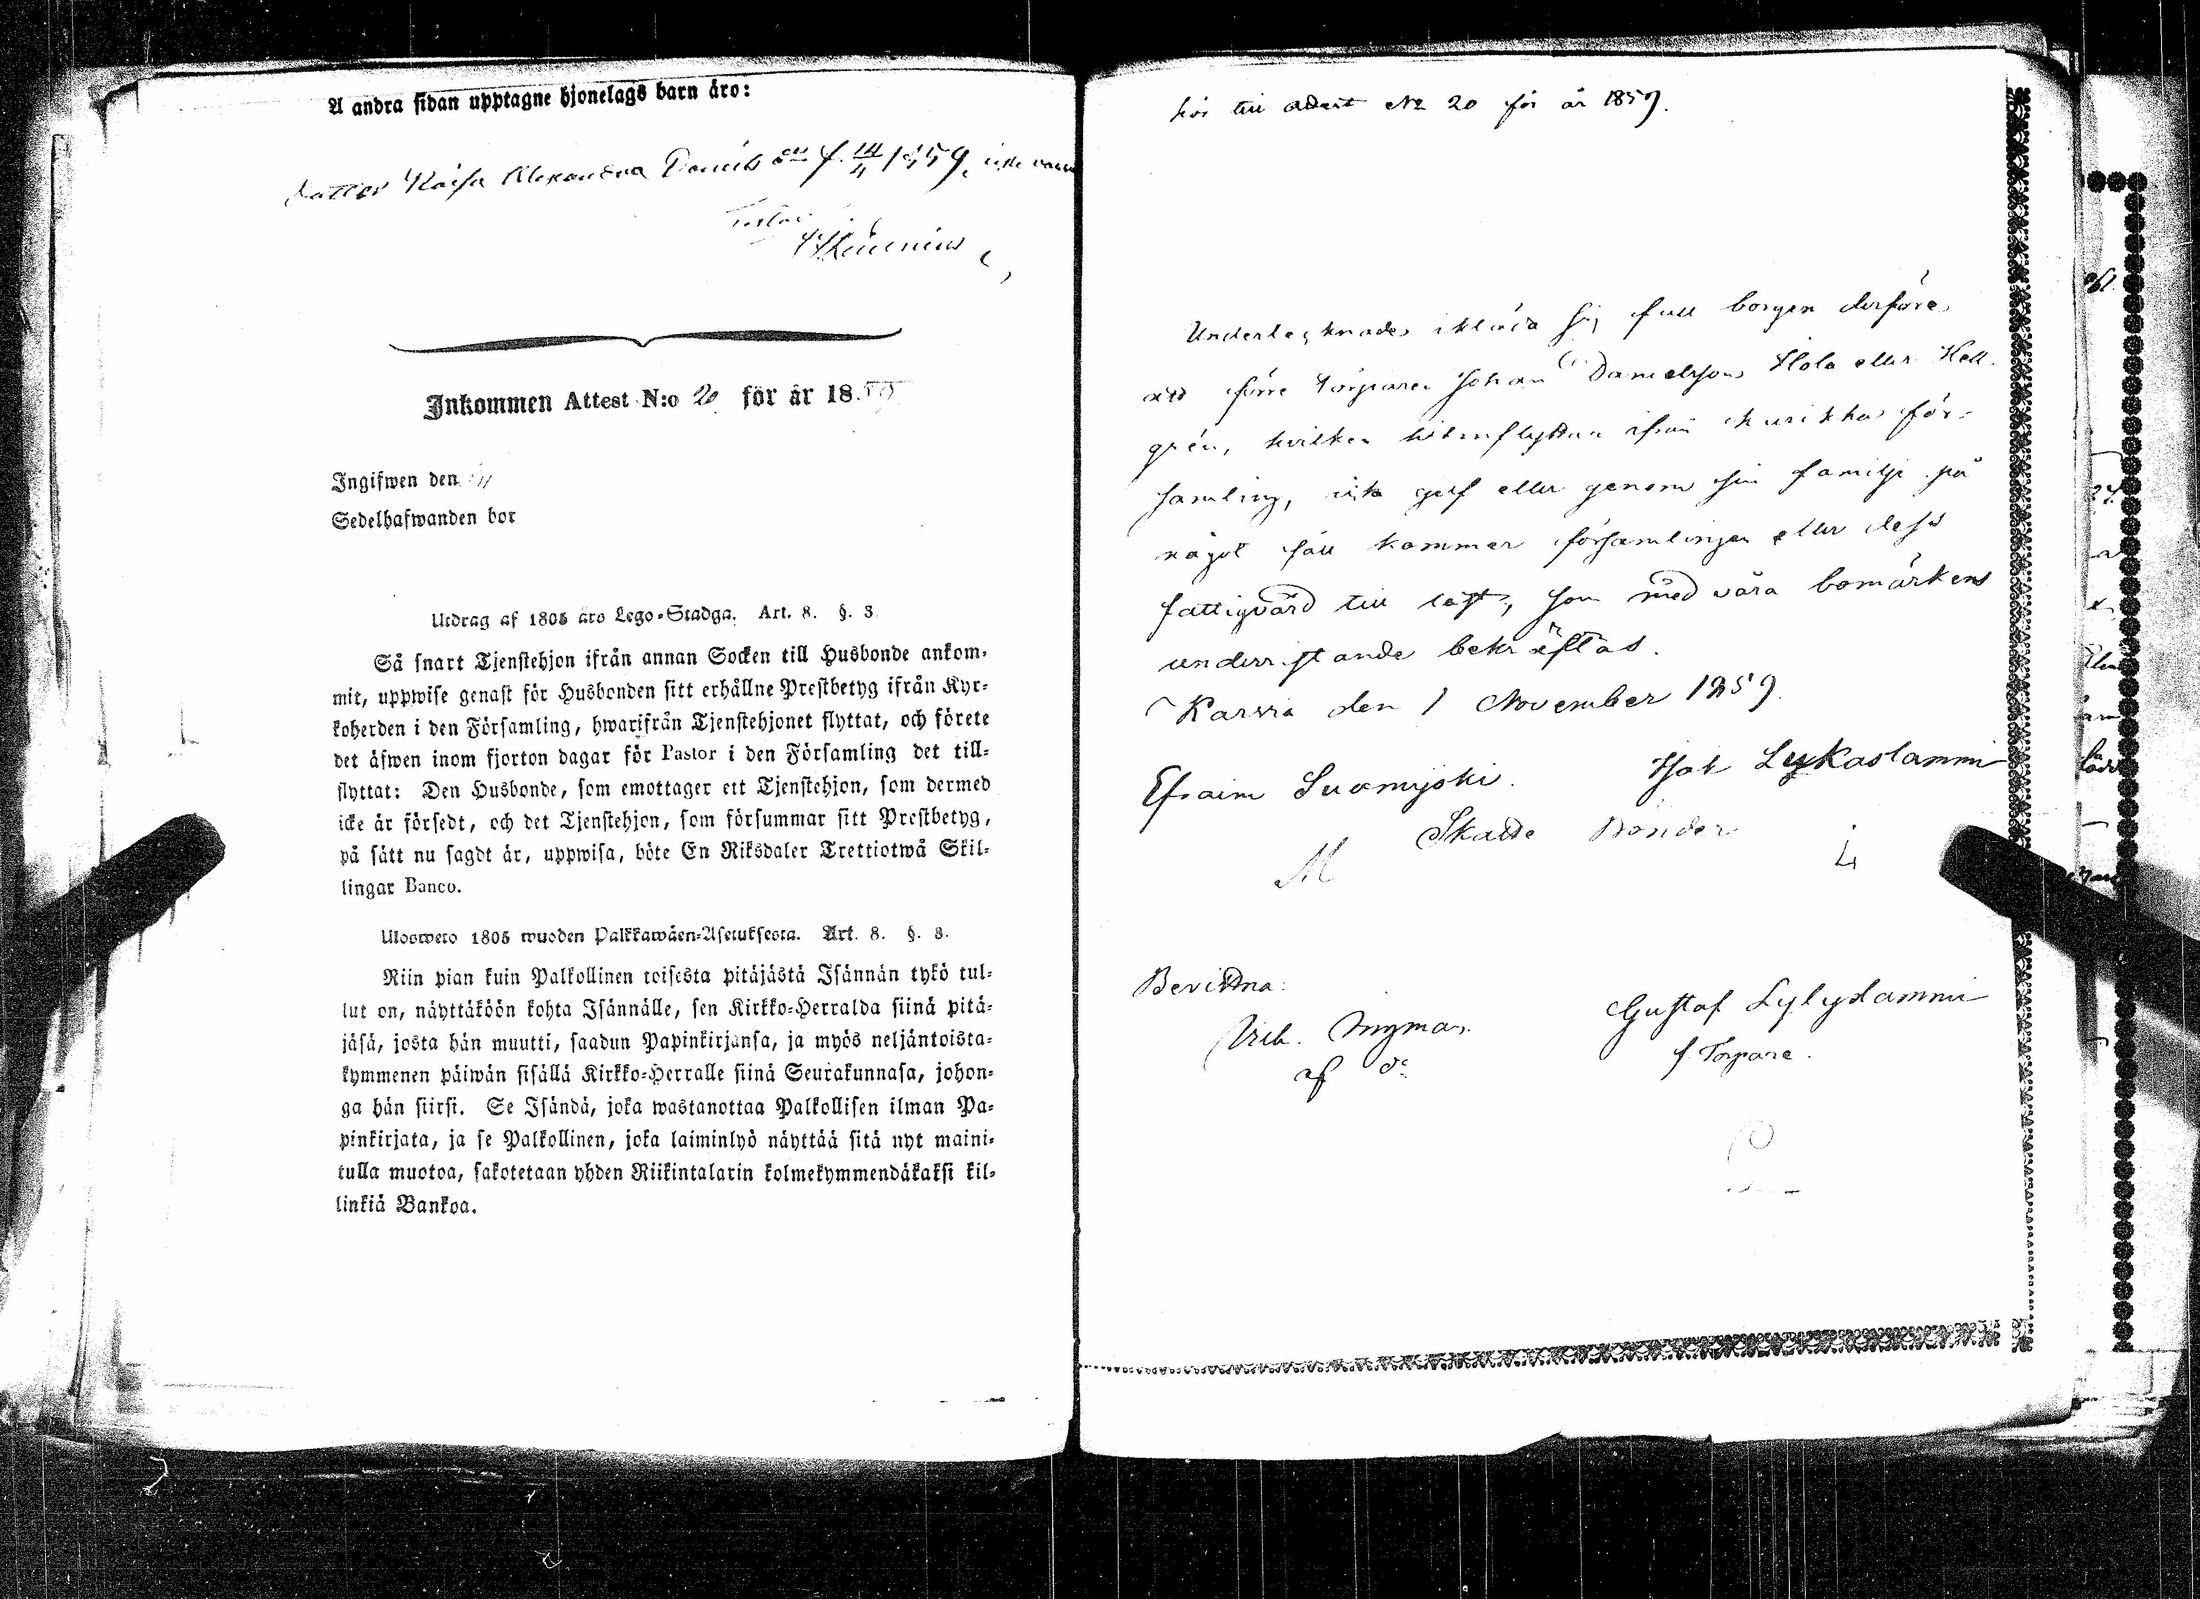 A andra sidan upptagne hjonelags barn äro:
dotter Kaisa Alexandra f. 14/4 1859, icke
Inkommen Attest N:o 20 för år 1859
Ingifwen den
Sedelhafwanden bor
Utdrag af 1805 års Lego-Stadga. Art. 8. §. 3.
Så snart Tjenstehjon ifrån annan Socken till Husbonde ankom-
mit, uppwise genast för Husbonden sitt erhållne Prestbetyg ifrån Kyr-
koherden i den Församling, hwarifrån Tjenstehjonet flyttat, och förete
det äfwen inom fjorton dagar för Pastor i den Församling det till-
flyttat: Den Husbonde, som emottager ett Tjenstehjon, som dermed
icke är försedt, och det Tjenstehjon, som försummar sitt Prestbetyg,
på sätt nu sagdt är, uppwisa, böte En Riksdaler Trettiotwå Skil-
lingar Banco.
Uloswето 1805 wuoden Palkkawäen-Asetuksesta. Art. 8. §. 3.
Niin pian kuin Palkollinen toisesta pitäjästä Isännän tykö tul-
lut on, näyttäköön kohta Isännälle, sen Kirkko-Herralda siinä pitä-
jäsä, josta hän muutti, saadun Papinkirjansa, ja myös neljäntoista-
kymmenen päiwän sisällä Kirkko-Herralle siinä Seurakunnasa, johon-
ga hän siirsi. Se Isändä, joka wastanottaa Palkollisen ilman Pa-
pinkirjata, ja se Palkollinen, joka laiminlyö näyttää sitä nyt maini-
tulla muotoa, sakotetaan yhden Riikintalarin kolmekymmendäkaksi kil-
linkiä Bankoa.
hör till attest No 20 för år 1859.
Undertecknade ikläda sig full borgen derföre,
att förre torparen Johan Danielsson Hola eller Hell-
grén, hvilken hitinflyttar ifrån Kurikka för-
samling, icke sjelf eller genom sin familje på
något fall kommer församlingen eller dess
fattigvård till last, som med våra bomärkens
underristande bekräftas.
Karvia den 1 November 1859.
Efraim Suomijoki. Isak Leykaslammi
Skatte Bönder
M
Bevittna:
Gustaf Lylylammi
f. Torpare.